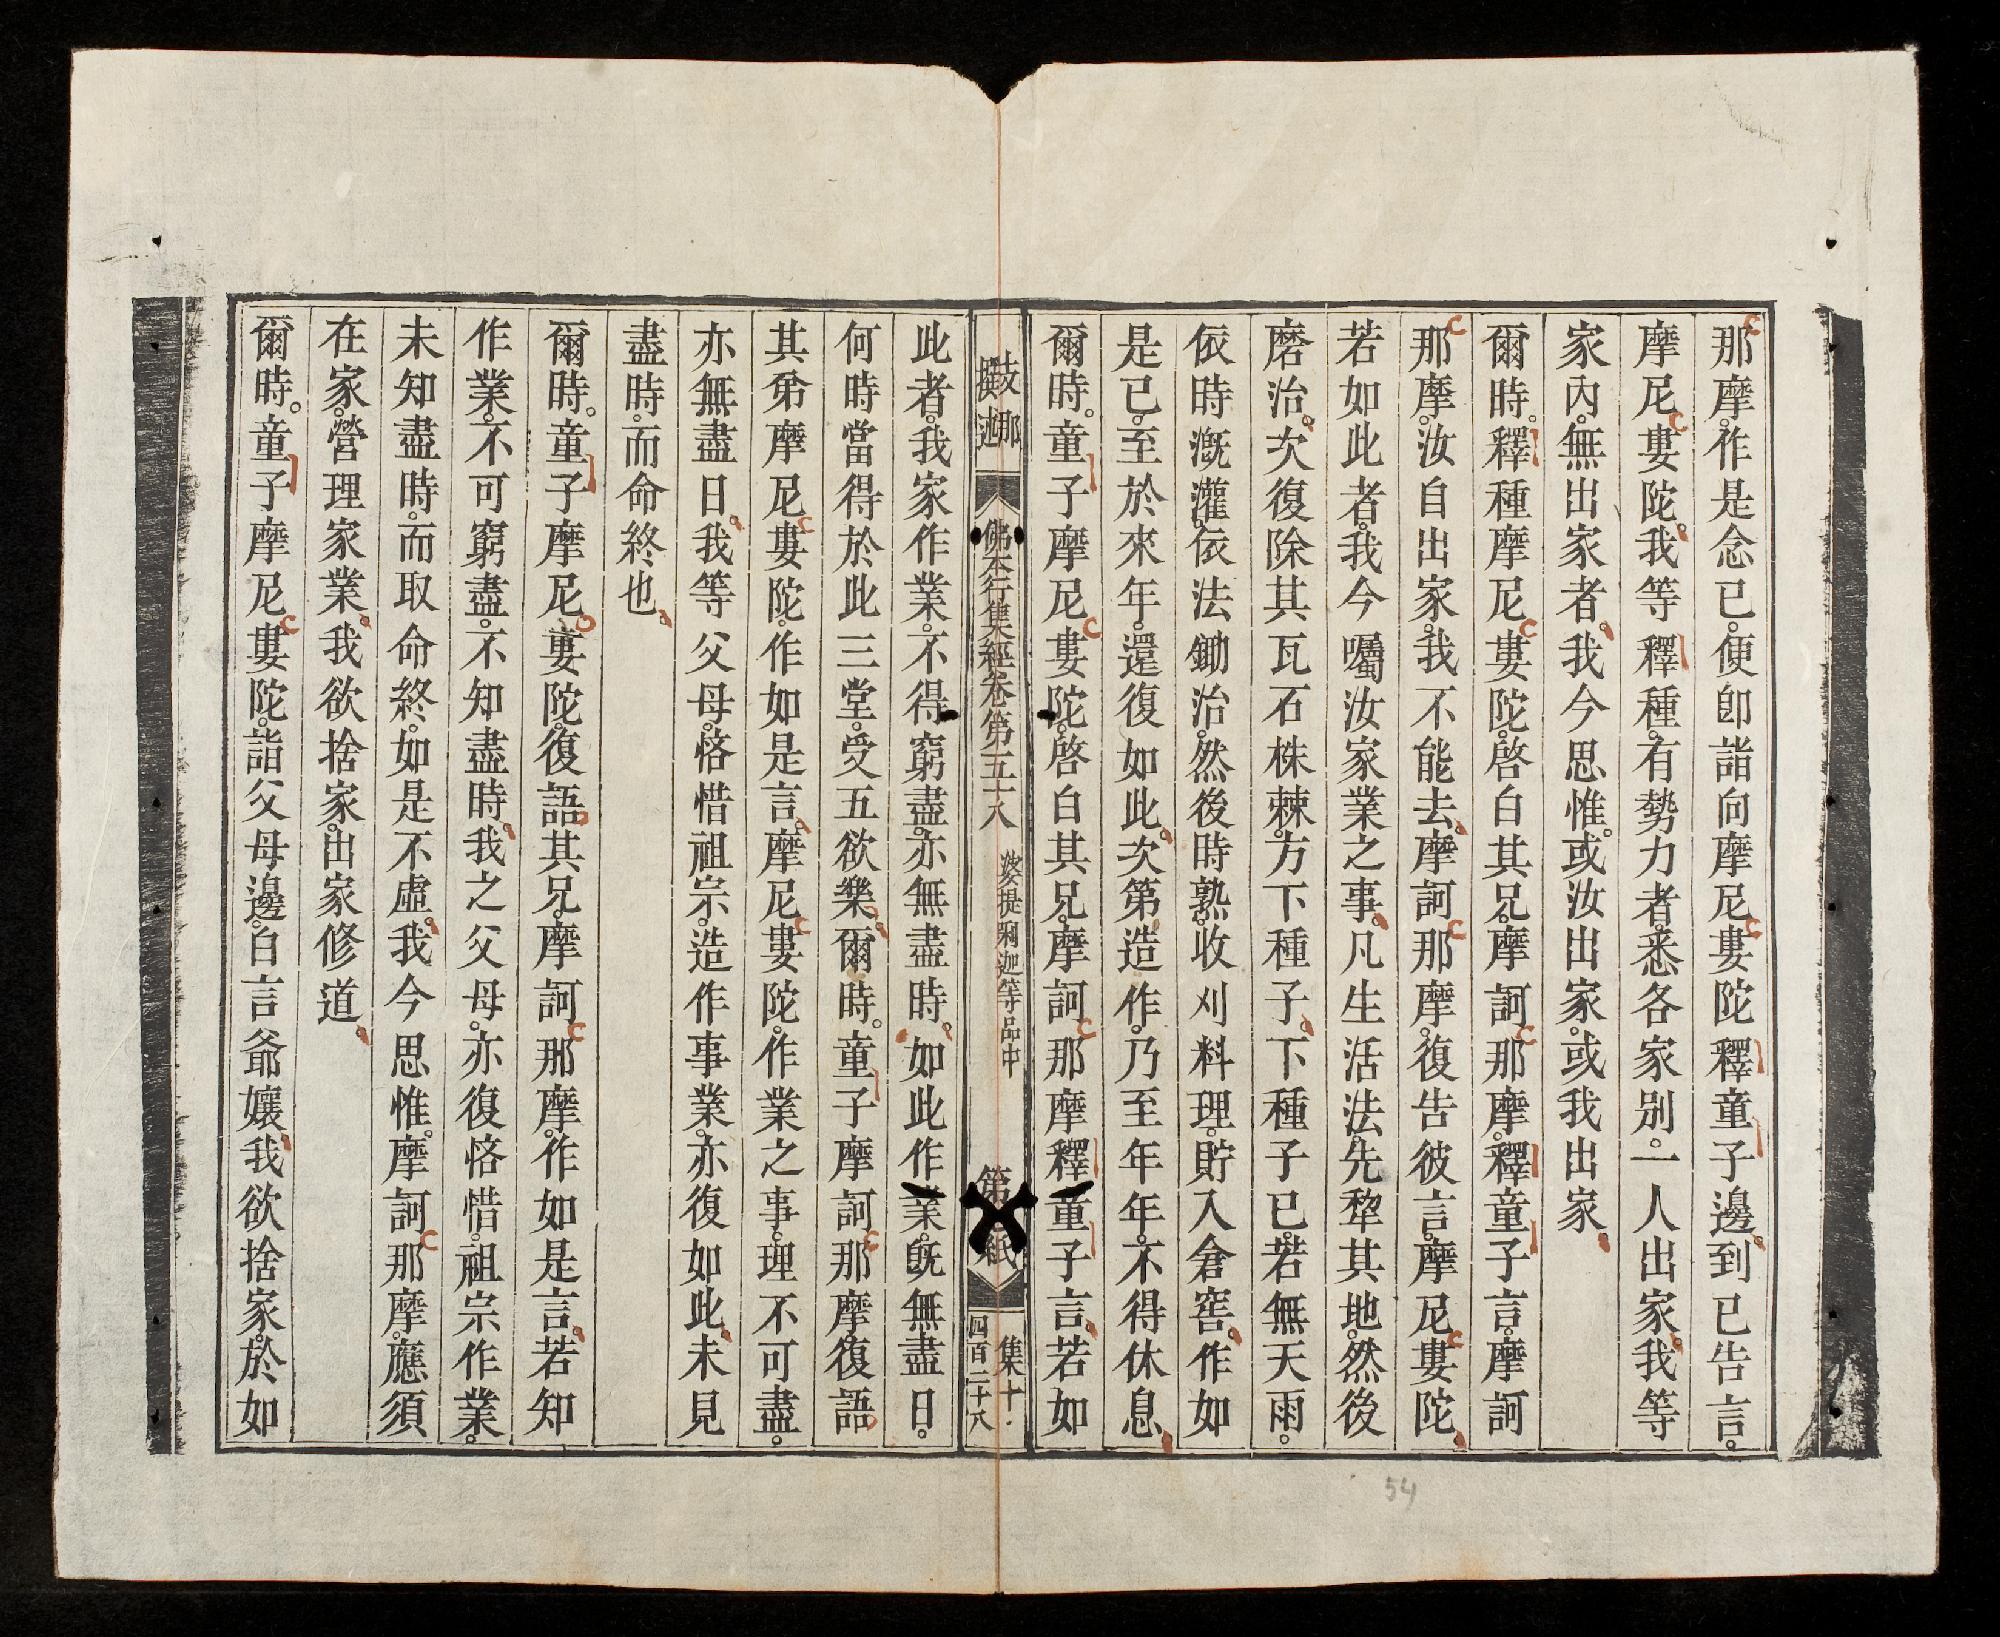 那摩。作是念已。便即詣向摩尼婁陀釋童子邊。到已告言。
摩尼婁陀。我等釋種。有勢力者。悉各家別。一人出家。我等
家內。無出家者。我今思惟。或汝出家。或我出家。
爾時。釋種摩尼婁陀。啓白其兄。摩訶那摩。釋童子言。摩訶
那摩。汝自出家。我不能去。摩訶那摩。復告彼言。摩尼婁陀。
若如此者。我今囑汝家業之事。凡生活法。先犂其地。然後
磨治。次復除其瓦石株棘。方下種子。下種子已。若無天雨。
依時漑灌。依法鋤治。然後時熟。收刈料理。貯入倉窖。作如
是已。至於來年。還復如此。次第造作。乃至年年。不得休息。
爾時。童子摩尼婁陀。啓白其兄。摩訶那摩釋童子言。若如
佛本行集經卷第五十八
婆提唎迦等品中
集十
四百二十八
此者。我家作業。不得窮盡。亦無盡時。如此作業。旣無盡日。
何時當得於此三堂。受五欲樂。爾時。童子摩訶那摩。復語
其弟摩尼婁陀。作如是言。摩尼婁陀。作業之事。理不可盡。
亦無盡日。我等父母。悋惜祖宗。造作事業。亦復如此。未見
盡時。而命終也。
爾時。童子摩尼婁陀。復語其兄。摩訶那摩。作如是言。若知
作業。不可窮盡。不知盡時。我之父母。亦復悋惜。祖宗作業。
未知盡時。而取命終。如是不虛。我今思惟。摩訶那摩。應須
在家。營理家業。我欲捨家。出家修道。
爾時。童子摩尼婁陀。詣父母邊。白言爺孃。我欲捨家。於如
54